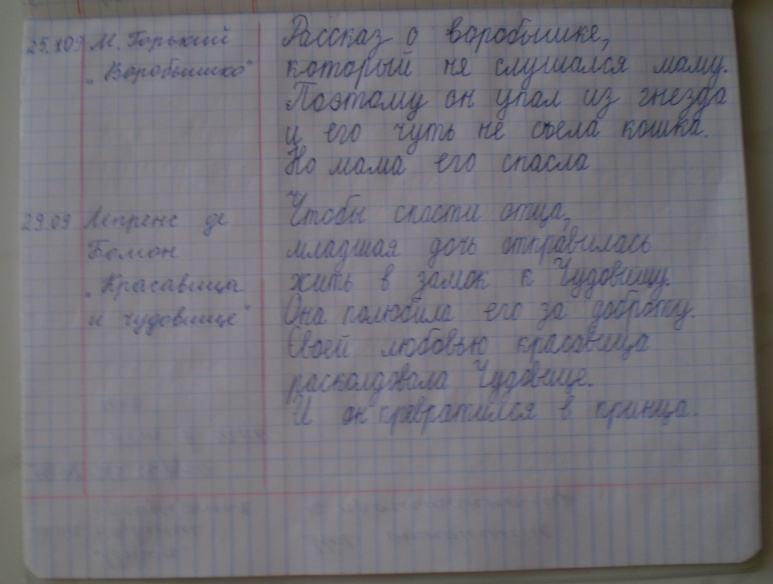 25.09 М. Горький
„Воробьишко"
Рассказ о воробьишке,
который не слушался маму.
Поэтому он упал из гнезда
и его чуть не съела кошка.
Но мама его спасла
29.09 Лепренс де
Бомон
„Красавица
и чудовище"
Чтобы спасти отца,
младшая дочь отправилась
жить в замок к Чудовищу.
Она полюбила его за доброту.
Своей любовью красавица
расколдовала Чудовище.
И он превратился в принца.